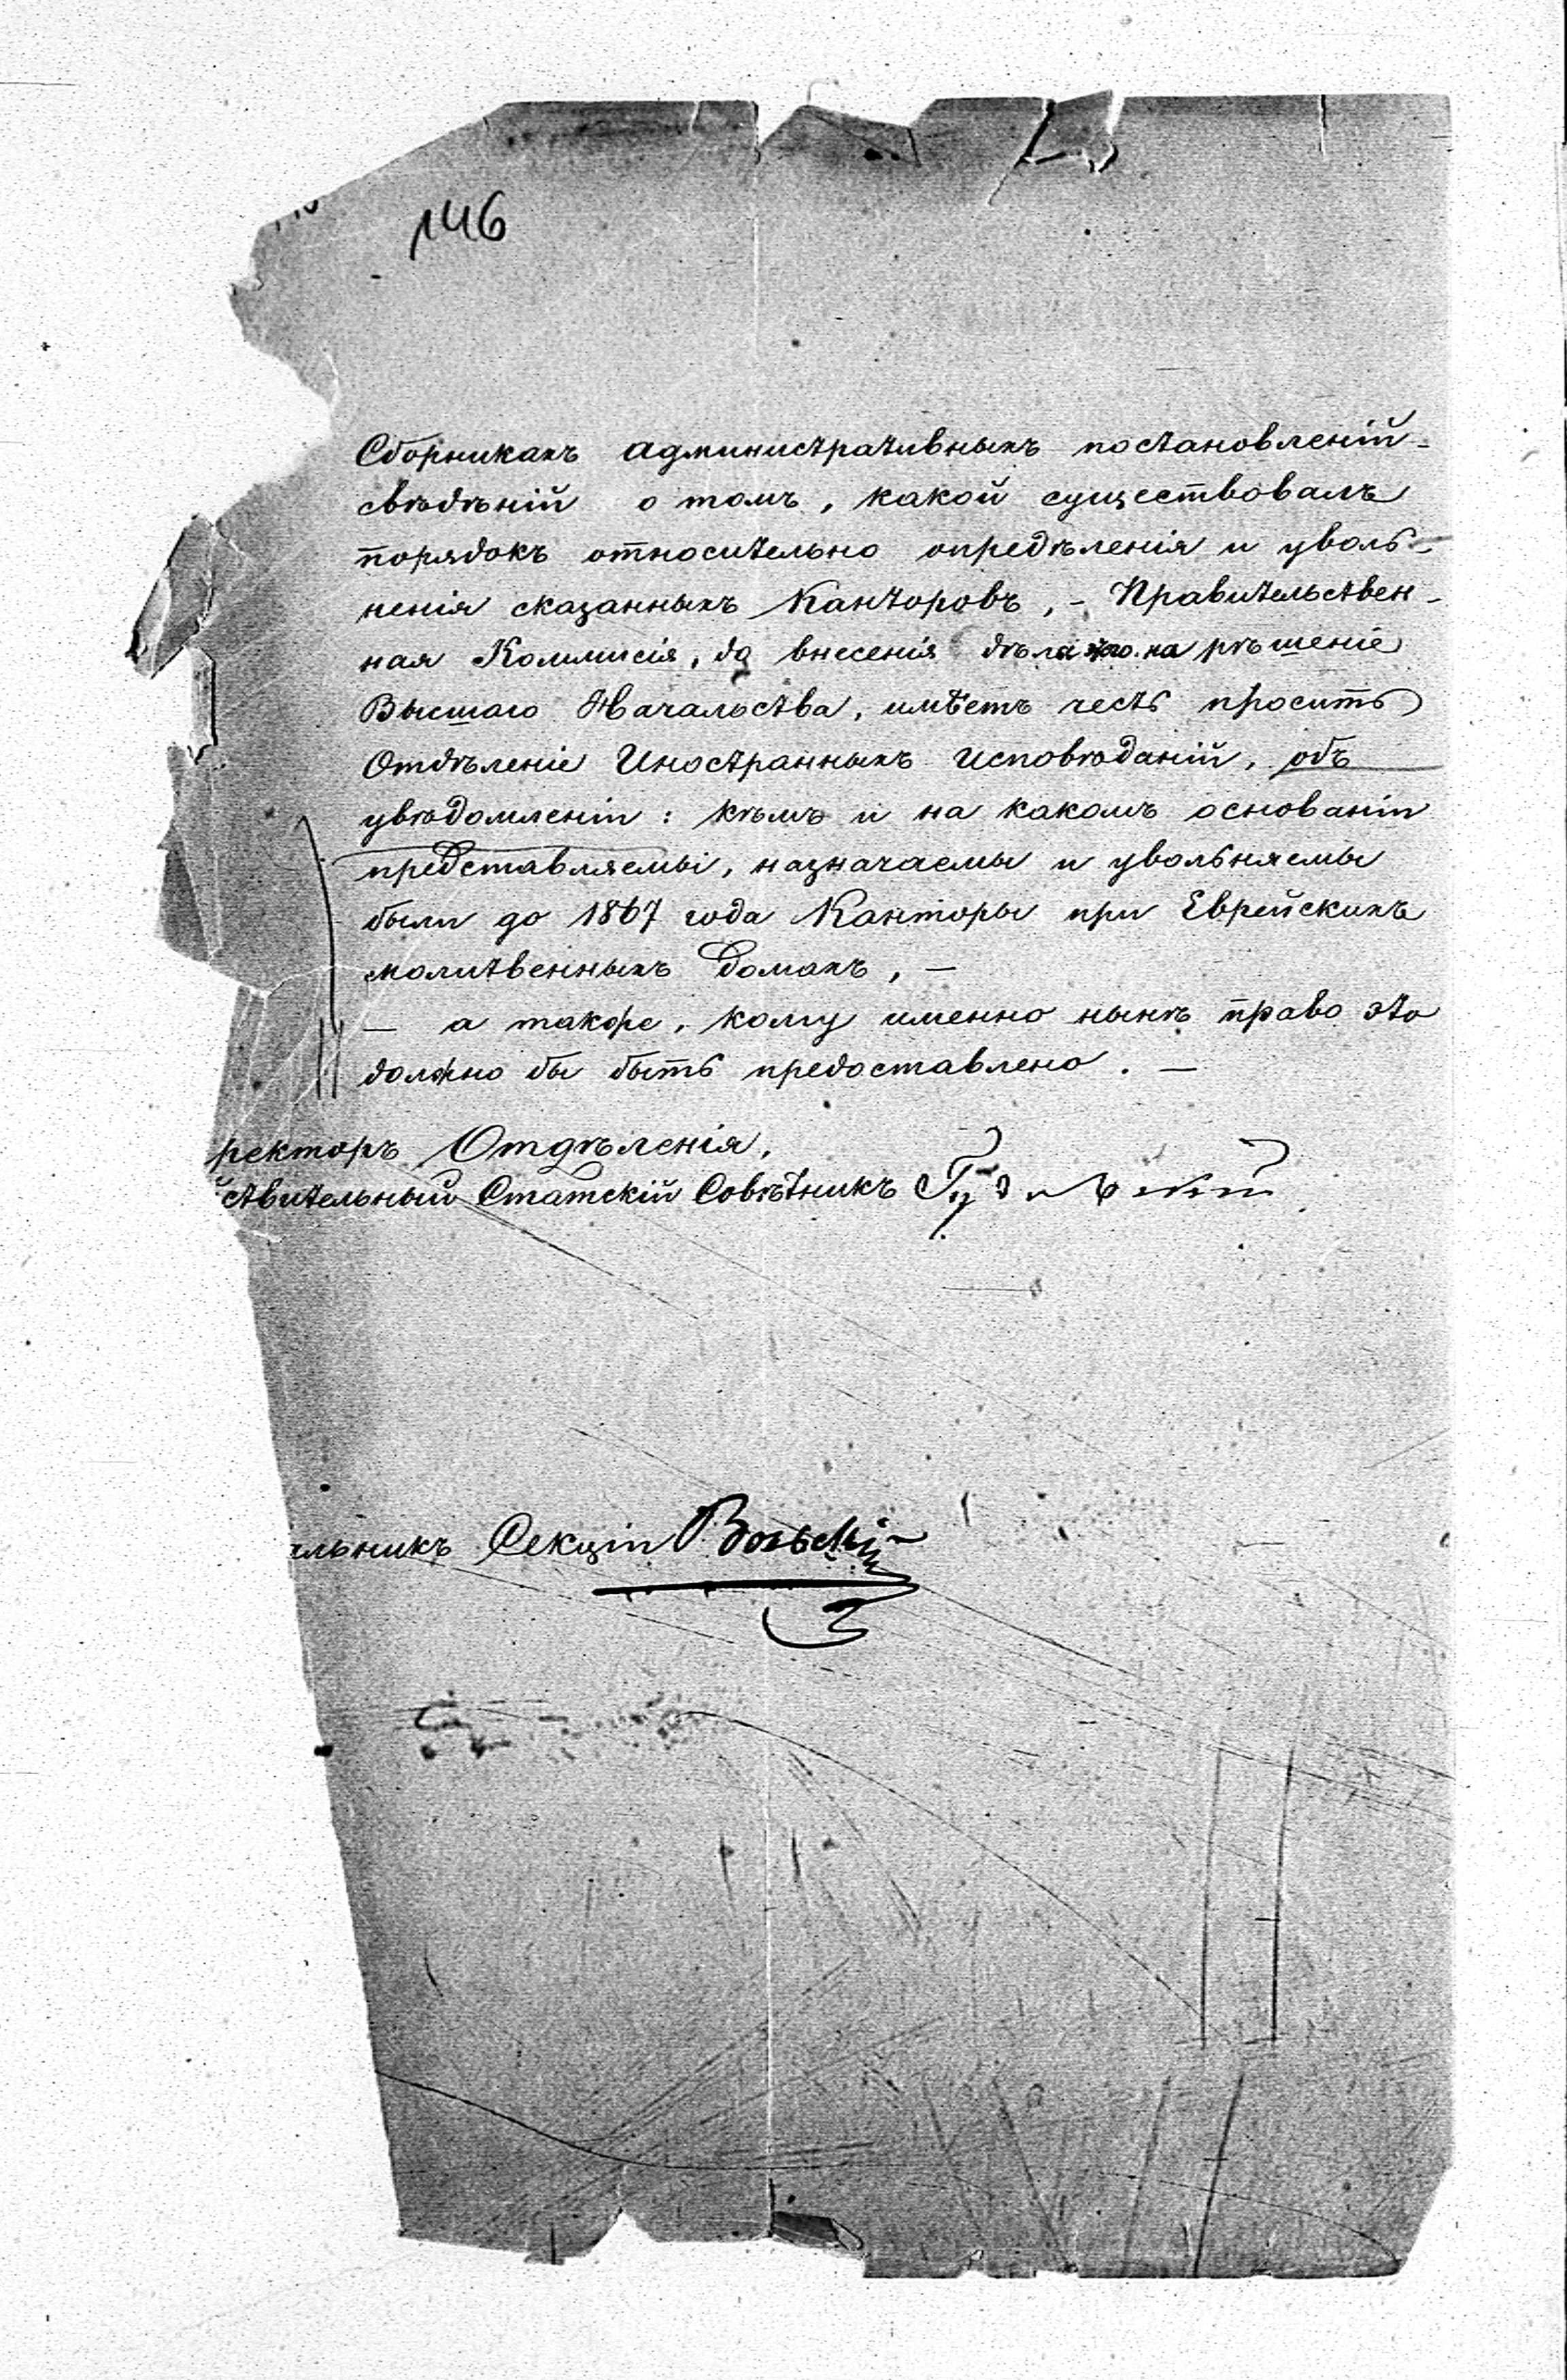 146
Сборникахъ административныхъ постановленій-
свѣдѣній о томъ, какой существовалъ
порядокъ относительно опредѣленія и уволь-
ненія сказанныхъ Канторовъ, - Правительствен-
ная Коммисія, до внесенія дѣла этого на рѣшеніе
Высшаго Начальства, имѣетъ честь просить
Отдѣленіе Иностранныхъ Исповѣданій, объ
увѣдомленіи: кѣмъ и на какомъ основаніи
представляемы, назначаемы и увольняемы
были до 1867 года Канторы при Еврейскихъ
молитвенныхъ домахъ, —
— а также, кому именно нынѣ право это
должно бы быть предоставлено. —
ректоръ Отдѣленія,
ствительный Статскій Совѣтникъ
альникъ Секціи